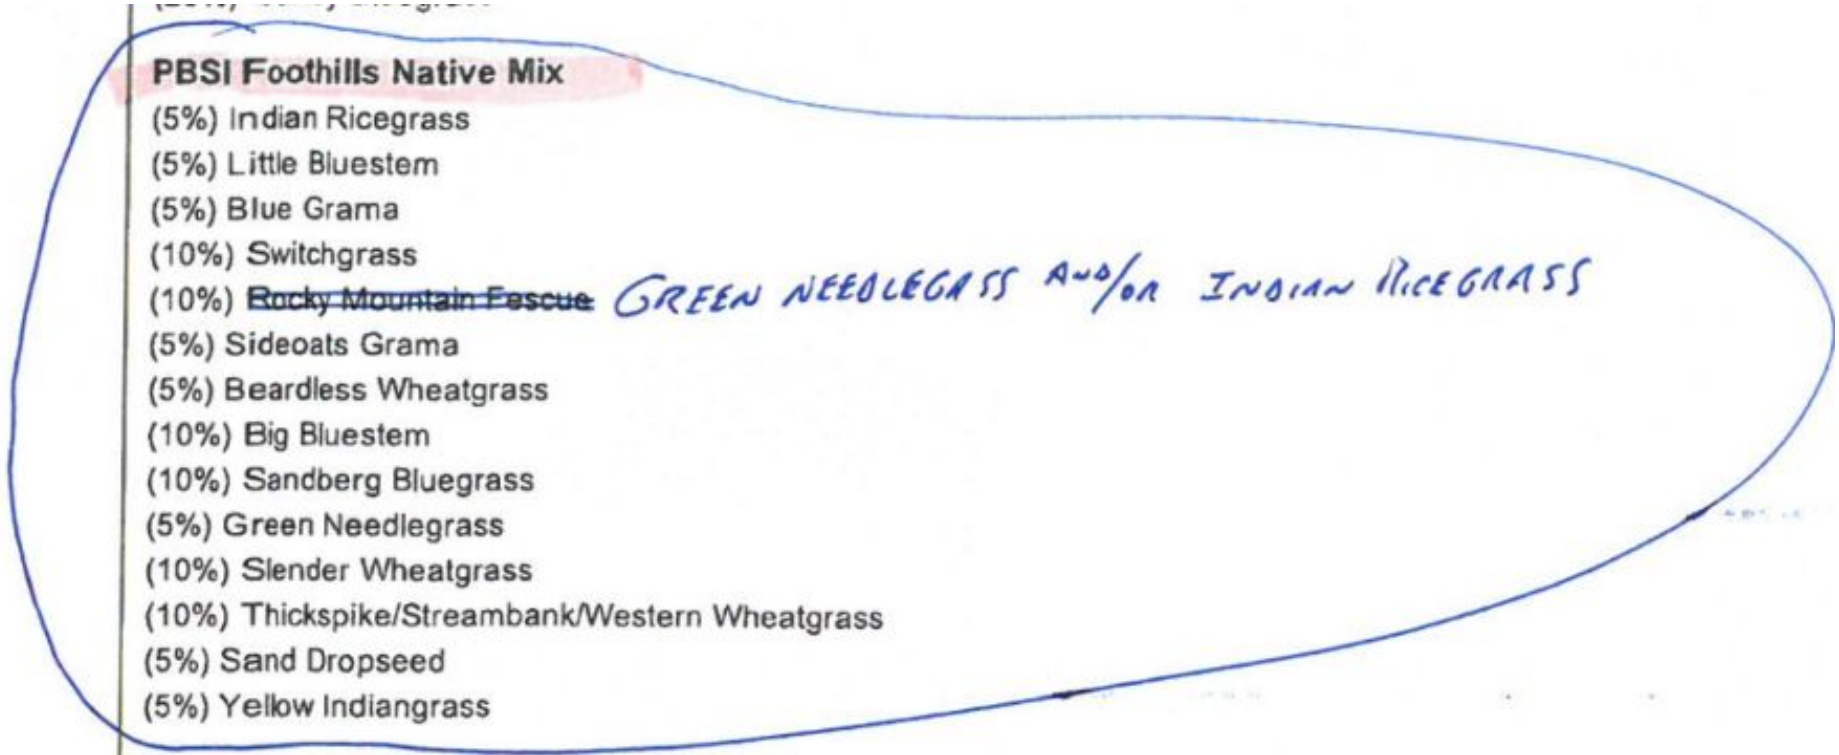 PBSI Foothills Native Mix
(5%) Indian Ricegrass
(5%) Little Bluestem
(5%) Blue Grama
(10%) Switchgrass
(10%) Rocky Mountain Fescue GREEN NEEDLEGASS AND/OR INDIAN RICEGRASS
(5%) Sideoats Grama
(5%) Beardless Wheatgrass
(10%) Big Bluestem
(10%) Sandberg Bluegrass
(5%) Green Needlegrass
(10%) Slender Wheatgrass
(10%) Thickspike/Streambank/Western Wheatgrass
(5%) Sand Dropseed
(5%) Yellow Indiangrass